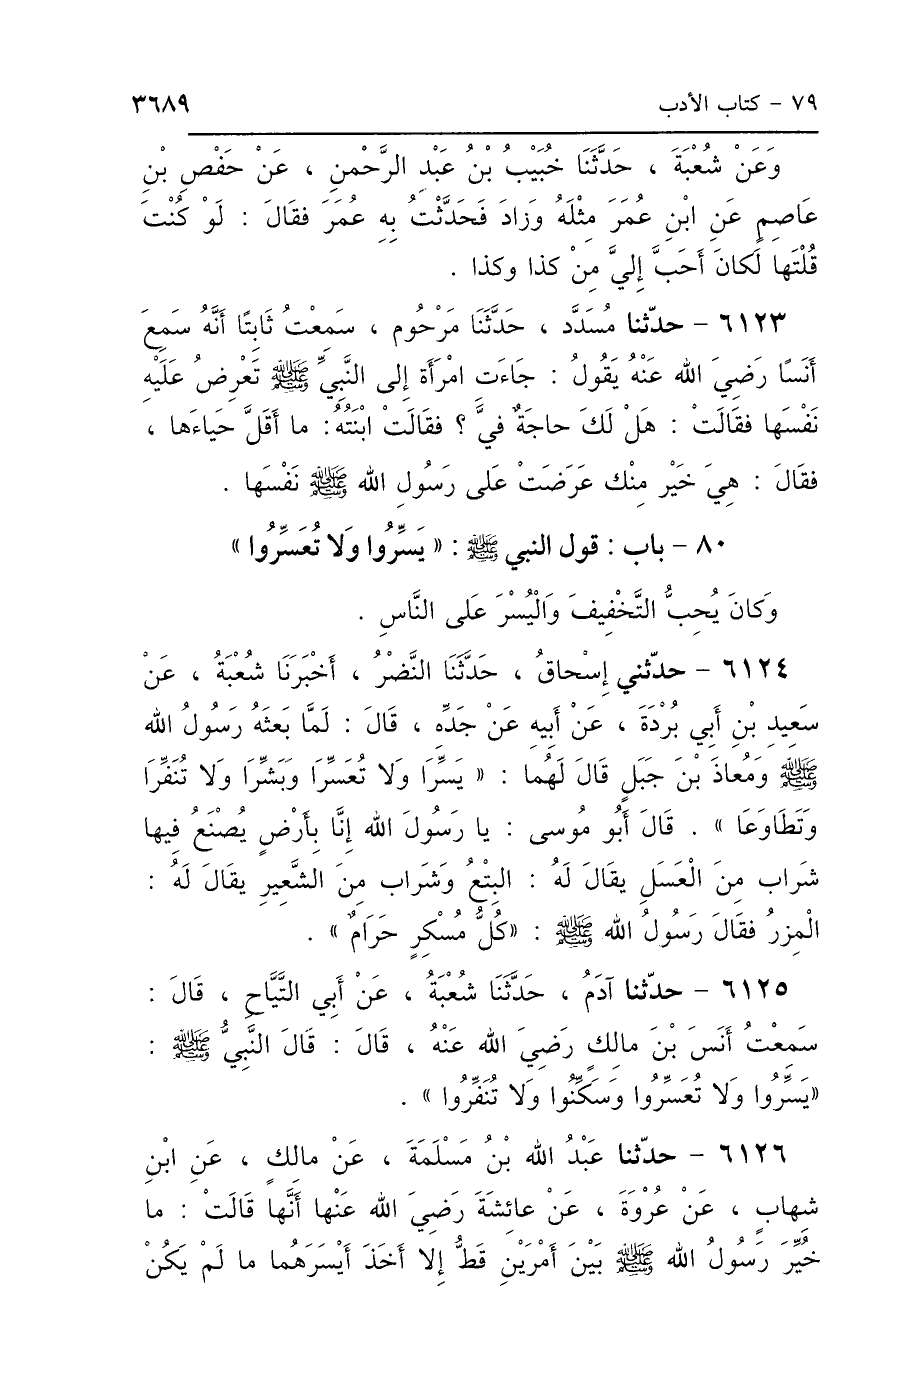 ٧٩ - كتاب الأدب ٣٦٨٩
وَعَنْ شُعْبَةَ ، حَدَّثَنَا خُبَيْبُ بْنُ عَبْدِ الرَّحْمنِ ، عَنْ حَفْصِ بْنِ
عَاصِمٍ عَنِ ابْنِ عُمَرَ مِثْلَهُ وَزادَ فَحَدَّثْتُ بِهِ عُمَرَ فقَالَ : لَوْ كُنْتَ
قُلْتَها لَكانَ أَحَبَّ إِليَّ مِنْ كذا وكذا .
٦١٢٣ - حدّثنا مُسَدَّد ، حَدَّثَنَا مَرْحُوم ، سَمِعْتُ ثَابِتًا أَنَّهُ سَمِعَ
أَنَسًا رَضِيَ الله عَنْهُ يَقُولُ : جَاءَتِ امْرَأَة إلى النَّبِيِّ ﷺ تَعْرِضُ عَلَيْهِ
نَفْسَها فقَالَتْ : هَلْ لَكَ حاجَةٌ فيَّ ؟ فقَالَتْ ابْنَتُهُ: ما أَقَلَّ حَياءَها ،
فقَالَ : هِيَ خَيْر مِنْك عَرَضَتْ عَلى رَسُولِ الله ﷺ نَفْسَها .
٨٠ - باب : قول النبي ﷺ : « يَسِّرُوا وَلا تُعَسِّرُوا »
وَكانَ يُحِبُّ التَّخْفِيفَ وَالْيُسْرَ عَلى النَّاسِ .
٦١٢٤ - حدّثني إِسْحاقُ ، حَدَّثَنَا النَّضْرُ ، أَخْبَرَنَا شُعْبَةُ ، عَنْ
سَعِيدِ بْنِ أَبي بُرْدَةَ ، عَنْ أَبيه عَنْ جَدِّه ، قَالَ : لَمَّا بَعثَهُ رَسُولُ الله
ﷺ وَمُعاذَ بْنَ جَبَلٍ قَالَ لَهُما : « يَسِّرَا وَلا تُعَسِّرَا وَبَشِّرَا وَلا تُنَفِّرَا
وَتَطَاوَعَا » . قَالَ أَبُو مُوسى : يا رَسُولَ الله إنَّا بِأَرْضٍ يُصْنَعُ فِيها
شَراب مِنَ الْعَسَلِ يقَالَ لَهُ : البِتْعُ وَشَراب مِنَ الشَّعِيرِ يقَالَ لَهُ :
الْمِزرُ فقَالَ رَسُولُ الله ﷺ : «كُلُّ مُسْكِرٍ حَرَامٌ » .
٦١٢٥ - حدّثنا آدَمُ ، حَدَّثَنَا شُعْبَةُ ، عَنْ أَبي التَّيَّاحِ ، قَالَ :
سَمعْتُ أَنَسَ بْنَ مالِكٍ رَضِيَ الله عَنْهُ ، قَالَ : قَالَ النَّبِيُّ ﷺ :
«يَسِّرُوا وَلا تُعَسِّرُوا وَسَكِّنُوا وَلا تُنَفِّرُوا » .
٦١٢٦ - حدّثنا عَبْدُ الله بْنُ مَسْلَمَةَ ، عَنْ مالِكٍ ، عَنِ ابْنِ
شهابٍ ، عَنْ عُرْوَةَ ، عَنْ عائِشةَ رَضِيَ الله عَنْها أَنَّها قَالَتْ : ما
خُيِّرَ رَسُولُ الله ﷺ بَيْنَ أَمْرَيْنِ قَطُّ إِلا أَخَذَ أَيْسَرَهُما ما لَمْ يَكُنْ